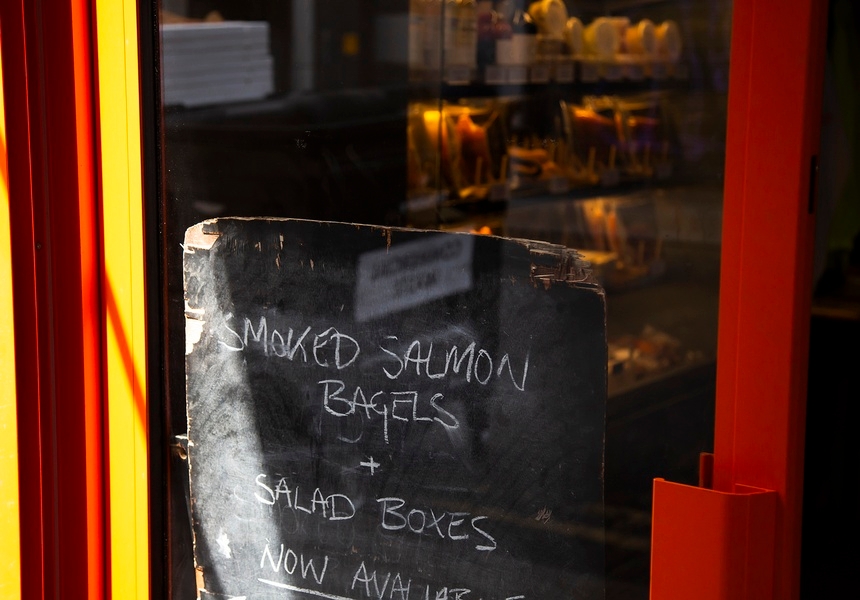 SMOKED SALMON
BAGELS
+
SALAD BOXES
NOW AVAILABLE